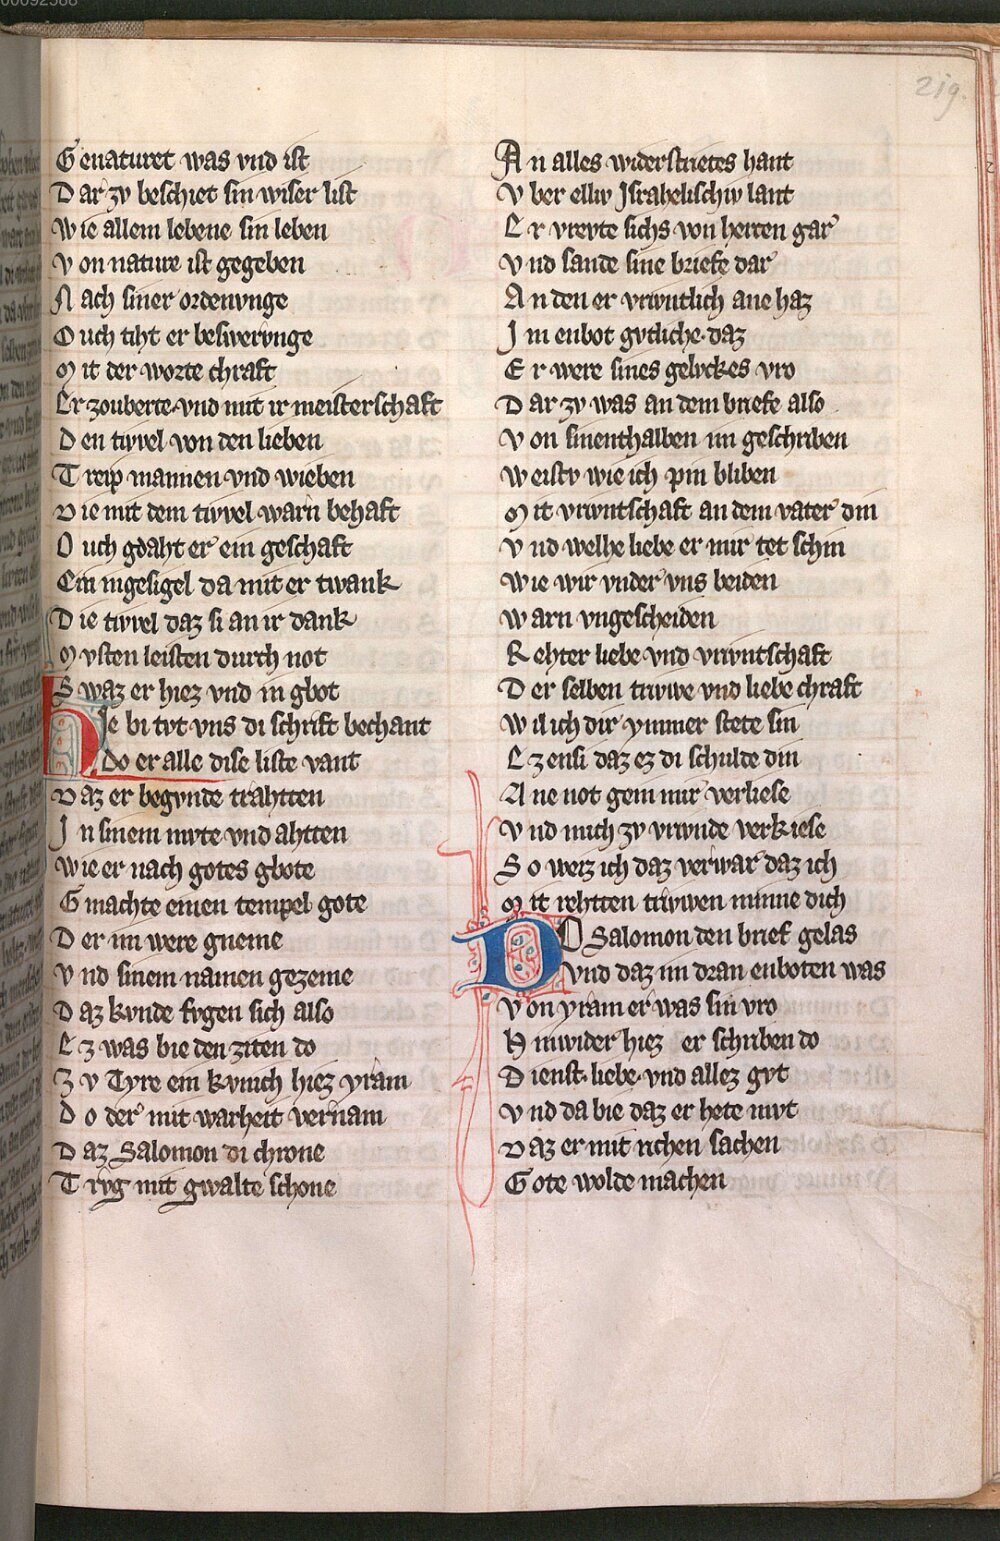 00092588
219.
Genaturet was vnd ist
Dar zv beschiet sin wiser list
Wie allem lebene sin leben
Von nature ist gegeben
Nach siner ordenvnge
Ouch tiht er beswervnge
Mit der worte chraft
Er zouberte·vnd mit ir meisterschaft
Den tivvel von den lieben
Treip mannen vnd wieben
Die mit dem tivvel warn behaft
Ouch gdaht er ein geschaft
Ein ingesigel da mit er twank
Die tivvel daz si an ir dank
Mvsten leisten durch not
Swaz er hiez vnd in gbot
Hie bi tvt vns di schrift bechant
Do er alle dise liste vant
Daz er begvnde trahtten
In sinem mvte vnd ahtten
Wie er nach gotes gbote
Gmachte einen tempel gote
Der im were gneme
Vnd sinem namen gezeme
Daz kvnde fvgen sich also
Ez was bie den ziten do
Zv Tyre ein kvnich hiez yram
Do der mit warheit vernam
Daz Salomon di chrone
Trvg mit gwalte schone
An alles widerstrietes hant
Vber elliv Israhelischiv lant
Er vrevte sichs von herren gar
Vnd sande sine briefe dar
An den er vrivntlich ane haz
Im enbot gvtliche·daz
Er were sines gelvckes vro
Dar zv was an dem briefe also
Von sinenthalben im geschriben
Weistv wie ich pin bliben
Mit vrivntschaft an dem vater din
Vnd welhe liebe er mir tet schin
Wie wir vnder vns beiden
Warn vngescheiden
Rehter liebe vnd vrivntschaft
Der selben trivwe vnd liebe chraft
Wil ich dir ymmer stete sin
Ez ensi daz ez di schulde din
Ane not gem mir verliese
Vnd mich zv vrivnde verkiese
So weiz ich daz verwar daz ich
Mit rehtten trivwen minne dich
DO Salomon den brief gelas
Vnd daz im dran enboten was
Von yram er was sin vro
Hinwider hiez er schriben do
Dienst·liebe·vnd allez gvt
Vnd da bie daz er hete mvt
Daz er mit richen sachen
Gote wolde machen